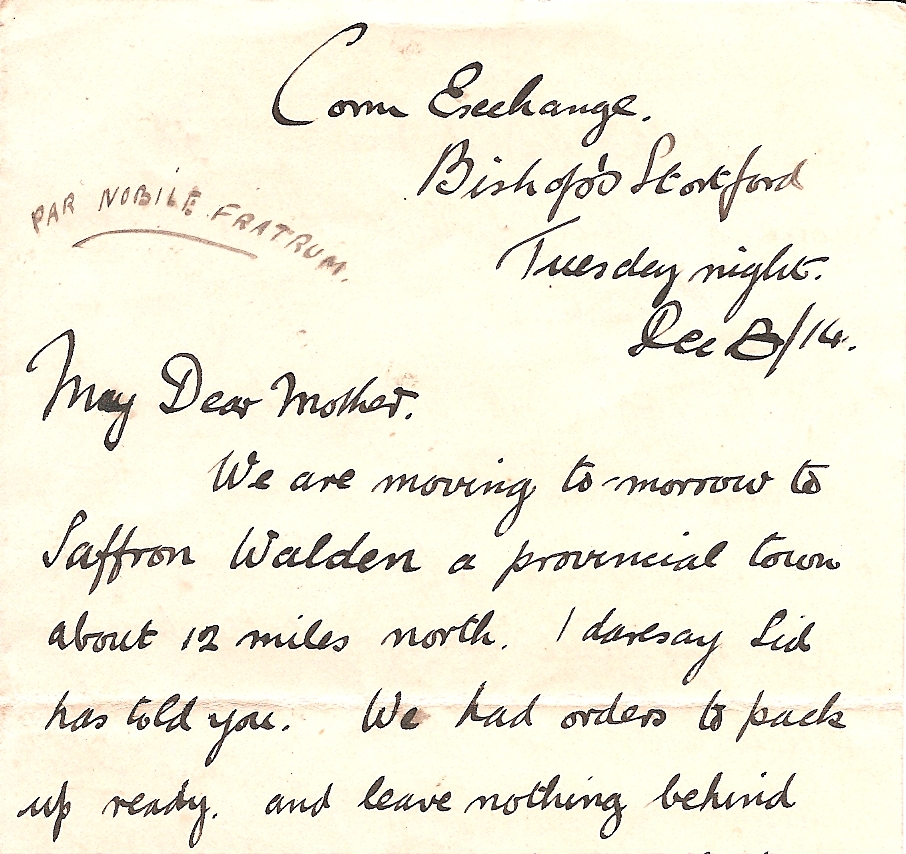 Corn Exchange.
Bishop's Stortford
PAR NOBILE FRATRUM.
Tuesday night.
Dec 8/14.
My Dear Mother.
We are moving to-morrow to
Saffron Walden a provincial town
about 12 miles north. I daresay Sid
has told you. We had orders to pack
up ready. and leave nothing behind